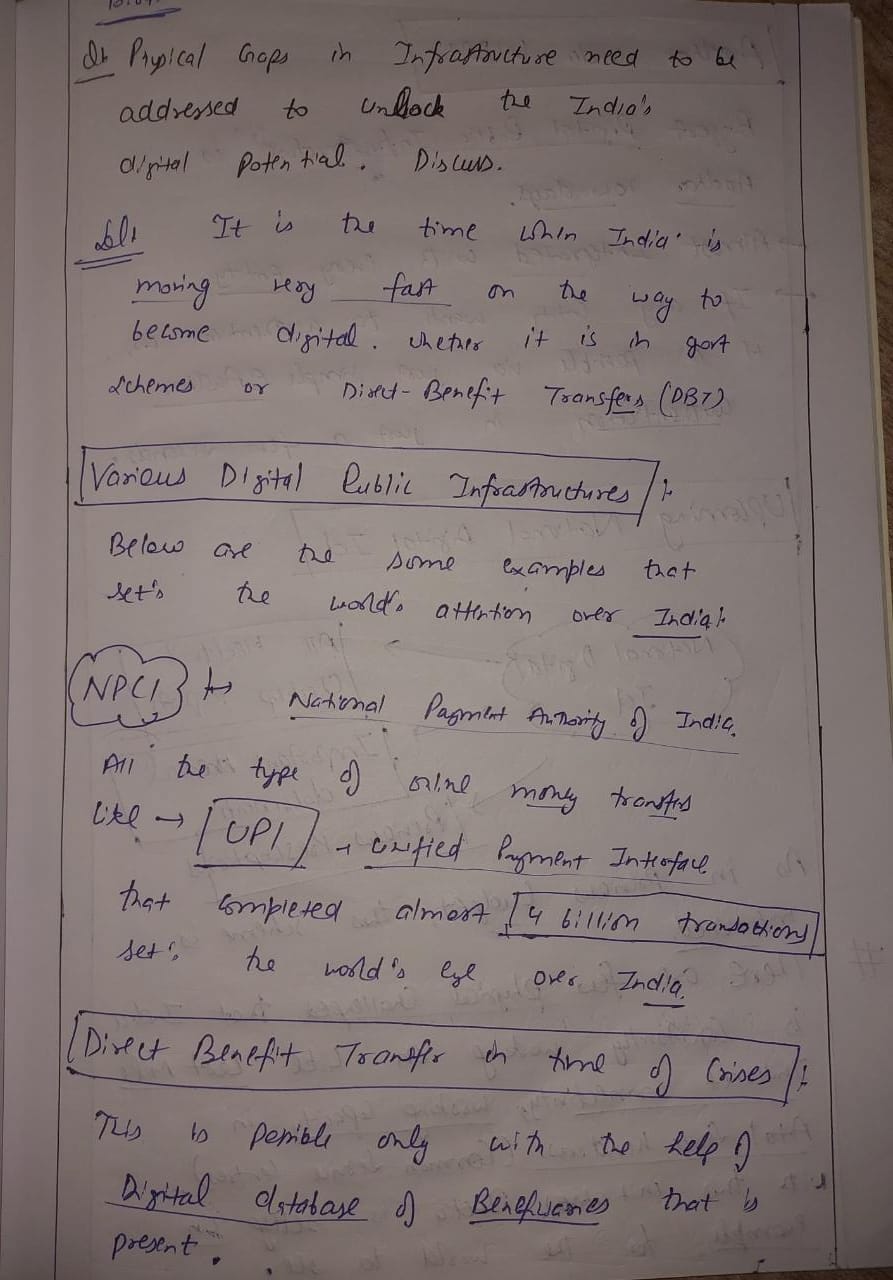 Q. Physical Gaps in Infrastructure need to be
addressed to unlock the India's
digital Potential. Discuss.
Sol: It is the time when India is
moving very fast on the way to
become digital. Whether it is in govt
schemes or Direct-Benefit Transfers (DBT)
Various Digital Public Infrastructures :-
Below are the some examples that
set's the world's attention over India :-
NPCI :→ National Payment Authority of India.
All the type of online money transfers
like → UPI → Unified Payment Interface
that completed almost 4 billion transactions
set's the world's eye over India.
Direct Benefit Transfer in time of Crises :
This is possible only with the help of
Digital database of Beneficiaries that is
present.